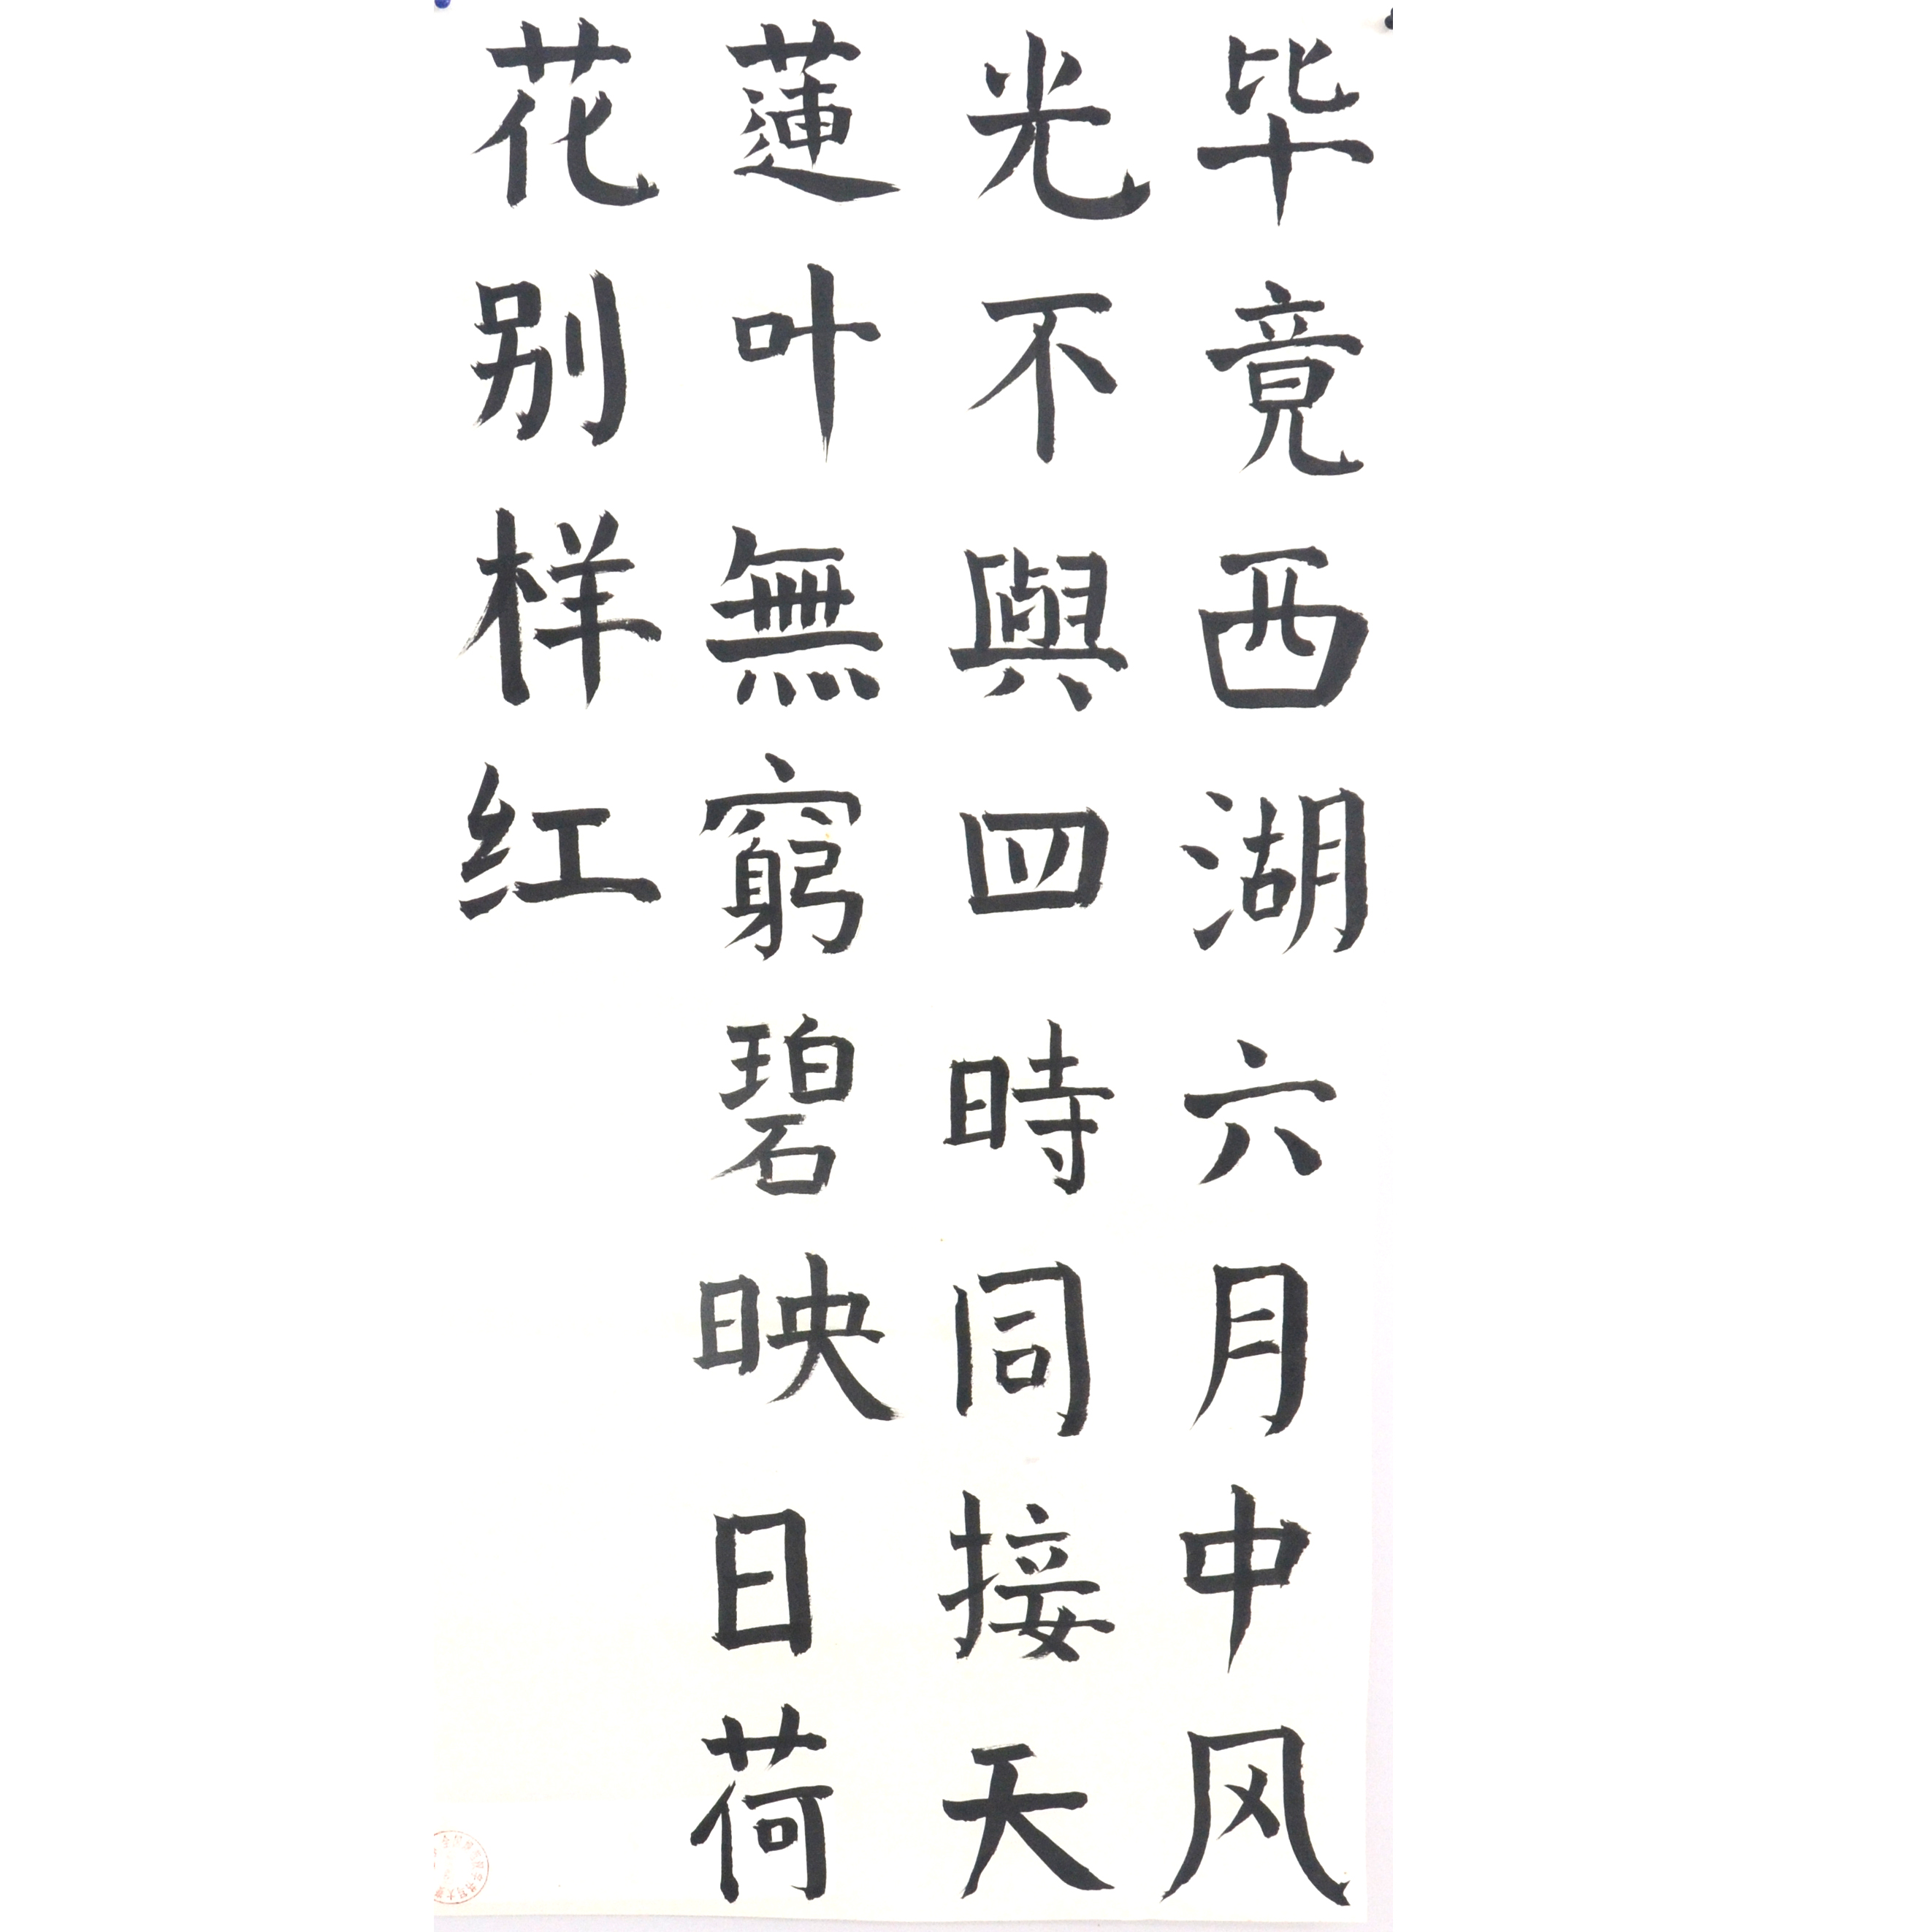 毕竟西湖六月中风
光不與四時同接天
蓮叶無窮碧映日荷
花别样红